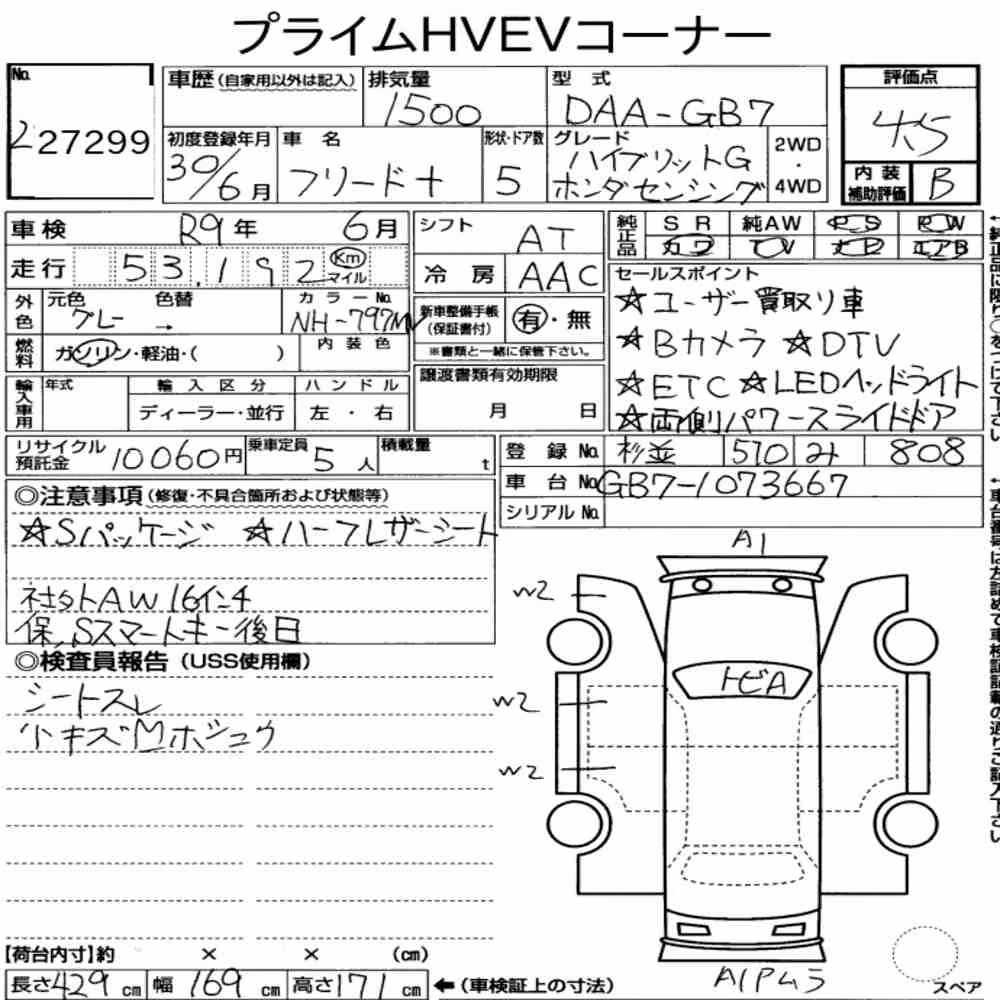 プライムHVEVコーナー
No. 227299
車歴(自家用以外は記入)
排気量 1500
型式 DAA-GB7
評価点 4.5
初度登録年月 30/6月
車名 フリード+
形状・ドア数 5
グレード ハイブリットG ホンダセンシング
2WD・4WD
内装補助評価 B
車検 R9年 6月
シフト AT
純正品 SR 純AW PS PW
カワ TV ナビ エアB
走行 53,192 Km マイル
冷房 AAC
外色 元色 グレー → 色替
カラーNo. NH-797MV
新車整備手帳(保証書付) 有・無
※書類と一緒に保管下さい。
セールスポイント
☆ユーザー買取り車
☆Bカメラ ☆DTV
☆ETC ☆LEDヘッドライト
☆両側パワースライドドア
燃料 ガソリン・軽油・( )
内装色
輸入車用 年式 輸入区分 ハンドル
ディーラー・並行 左・右
譲渡書類有効期限
月 日
リサイクル預託金 10060円
乗車定員 5人
積載量 t
登録No. 杉並 570 み 808
車台No. GB7-1073667
シリアルNo.
◎注意事項(修復・不具合箇所および状態等)
☆Sパッケージ ☆ハーフレザーシート
社外AW16インチ
保、Sスマートキー後日
◎検査員報告(USS使用欄)
シートスレ
小キズMホシュウ
A1
W2
トビA
W2
W2
A1Pムラ
スペア
【荷台内寸】約 × × (cm)
長さ429cm 幅169cm 高さ171cm ←(車検証上の寸法)